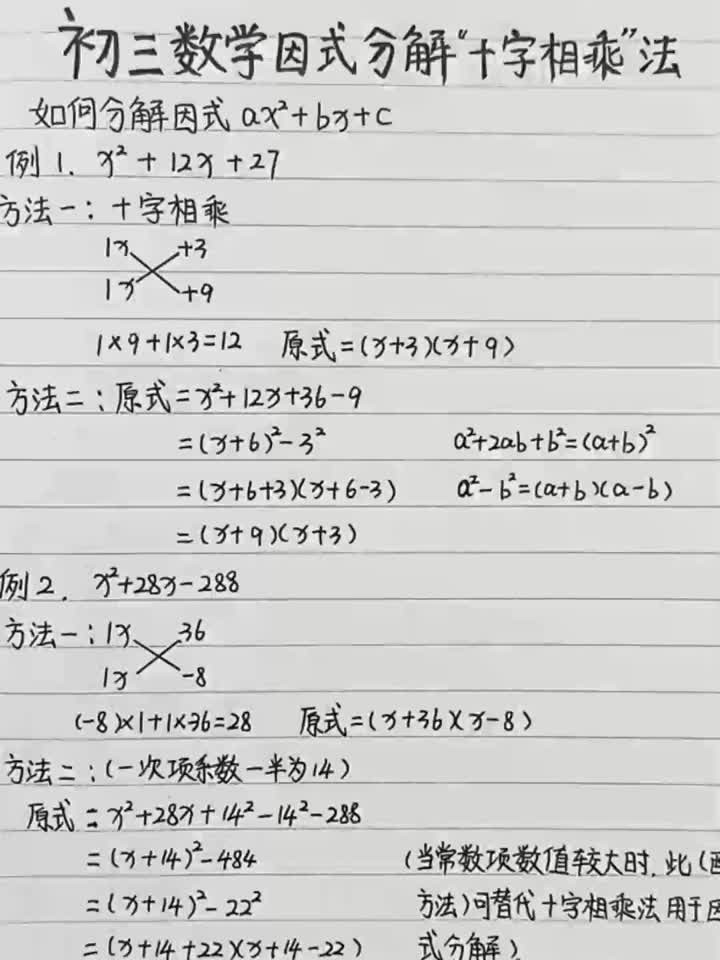 初三数学因式分解“十字相乘”法
如何分解因式 ax²+bx+c
例1. x²+12x+27
方法一: 十字相乘
1x +3
1x +9
1×9+1×3=12 原式=(x+3)(x+9)
方法二: 原式=x²+12x+36-9
=(x+6)²-3² a²+2ab+b²=(a+b)²
=(x+6+3)(x+6-3) a²-b²=(a+b)(a-b)
=(x+9)(x+3)
例2. x²+28x-288
方法一: 1x 36
1x -8
(-8)×1+1×36=28 原式=(x+36)(x-8)
方法二: (一次项系数一半为14)
原式=x²+28x+14²-14²-288
=(x+14)²-484 (当常数项数值较大时, 此(
=(x+14)²-22² 方法)可替代十字相乘法用于因
=(x+14+22)(x+14-22) 式分解)